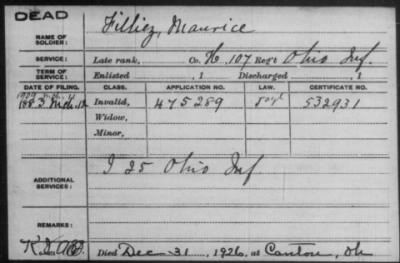 DEAD
NAME OF SOLDIER: Filliez, Maurice
SERVICE: Late rank, Co. H, 107 Reg't Ohio Inf.
TERM OF SERVICE: Enlisted , 1 Discharged , 1
DATE OF FILING. CLASS. APPLICATION NO. LAW. CERTIFICATE NO.
1883 Mch. 12 Invalid, 475289 532931
Widow,
Minor,
ADDITIONAL SERVICES: I 25 Ohio Inf
REMARKS:
Died Dec 31, 1926, at Canton, Oh